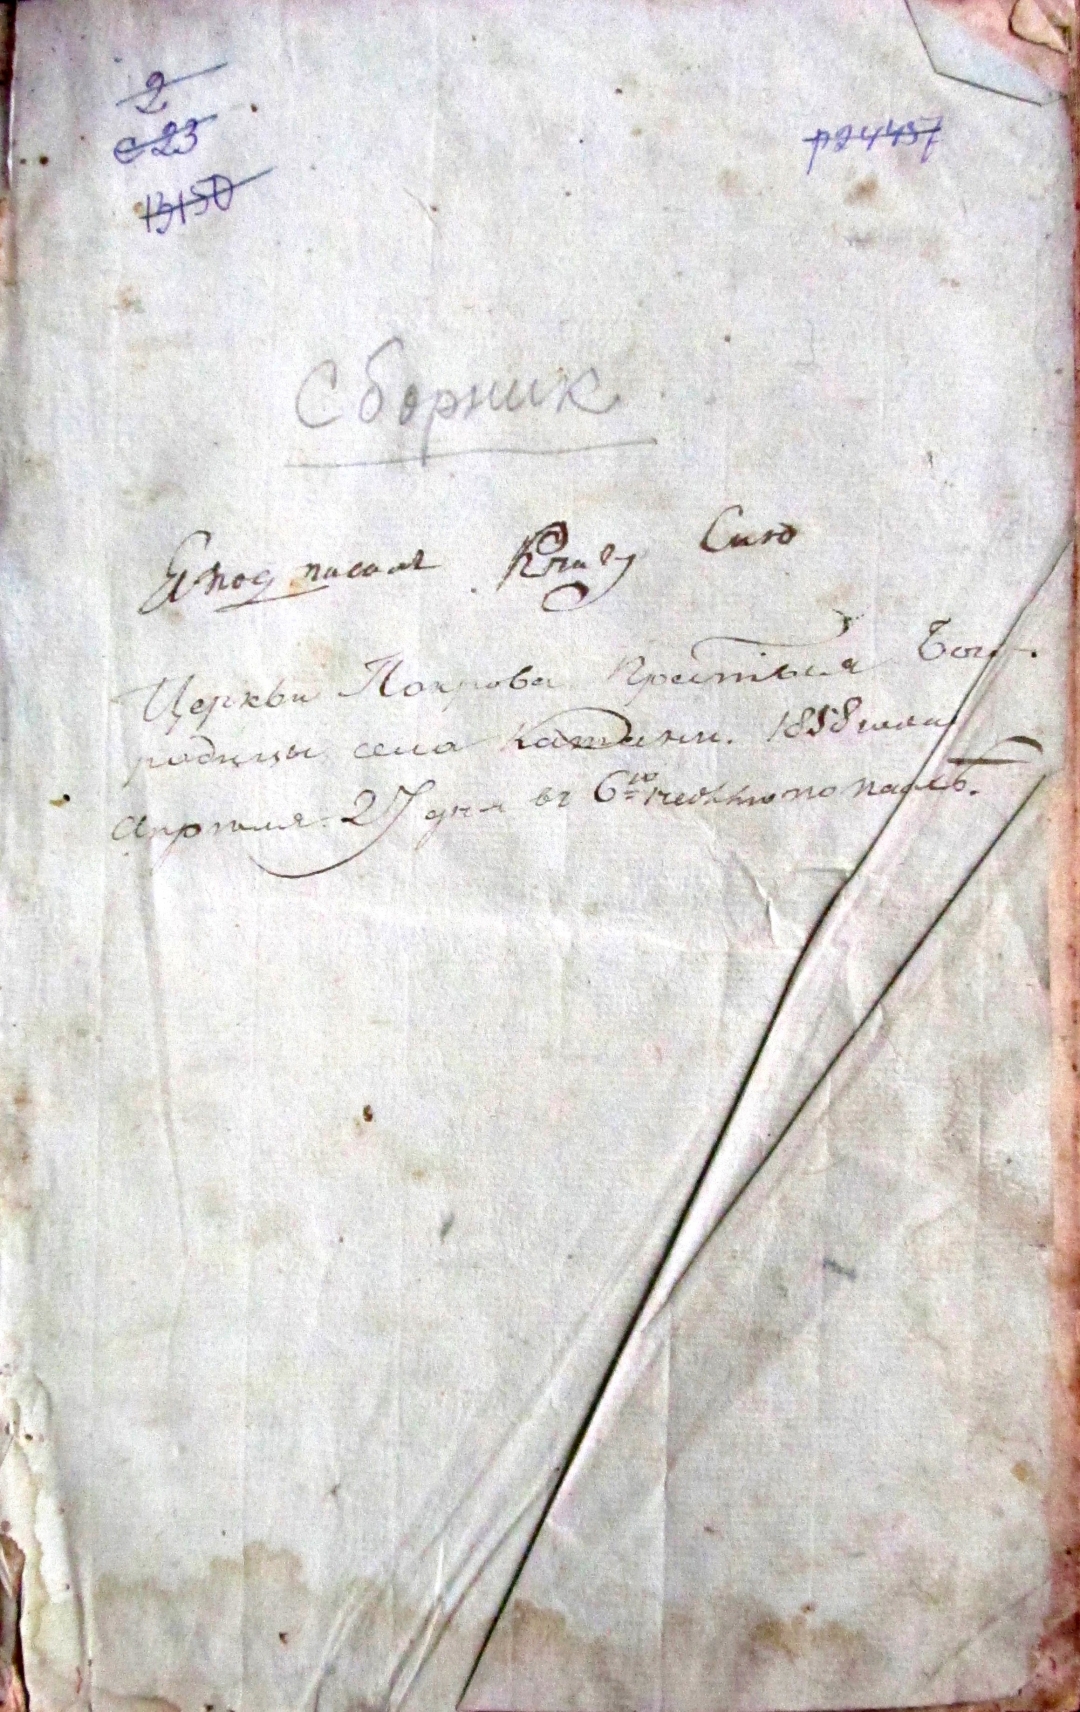 2
с 23
13150
р24457
Сборник
Я подписалъ Книгу Сию
Церкви Покрова Престыя Бого-
родицы села 1858 года
Апреля 27 дня въ 6ю неделю по пасхѣ.